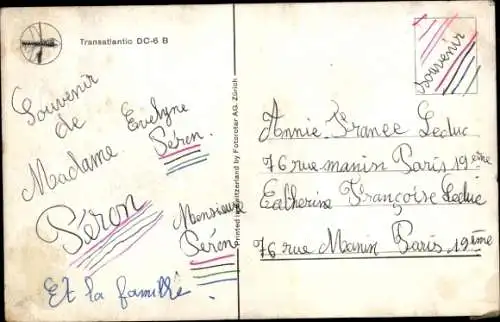 Transatlantic DC-6 B
Souvenir
de
Madame
Péron
Evelyne
Péron.
Monsieur
Péron
Et la famille.
Printed in Switzerland by Fotorotar AG, Zürich
Souvenir
Annie France Leduc
76 rue manin Paris 19ème
Catherine Françoise Leduc
76 rue Manin Paris 19ème